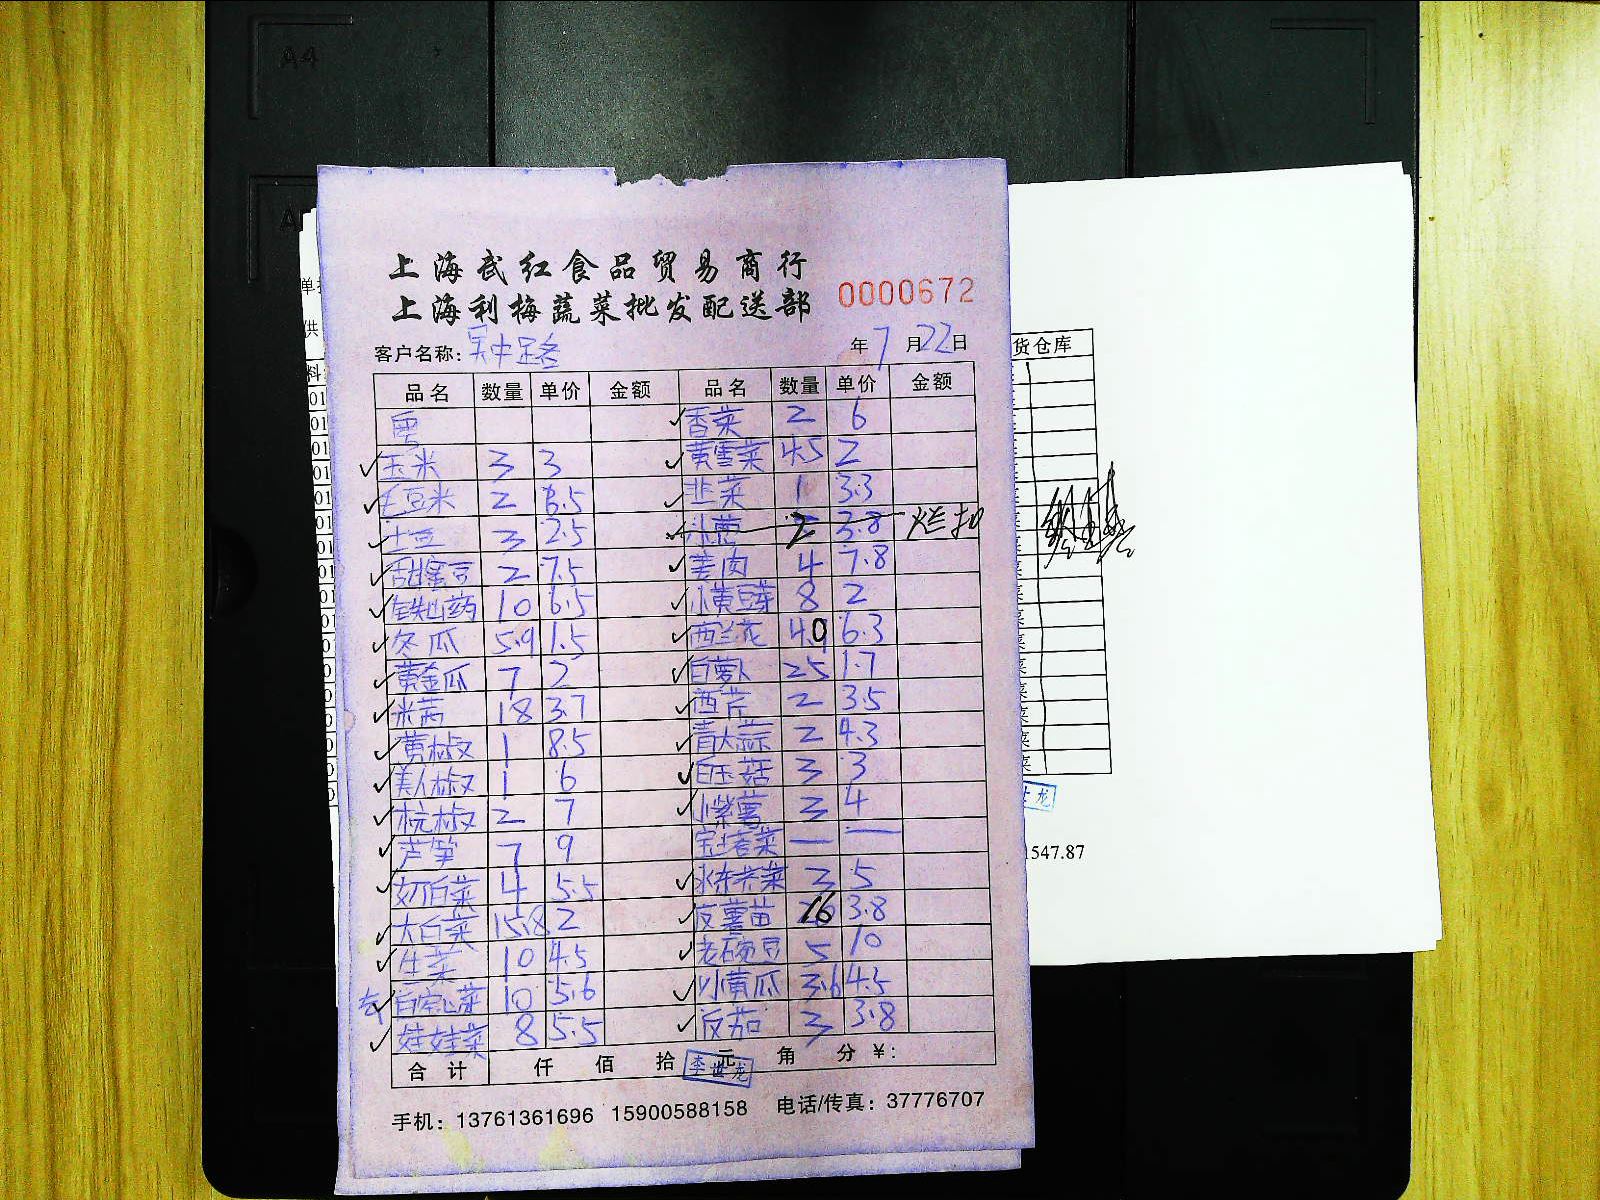 A4
上海武红食品贸易商行
上海利梅蔬菜批发配送部
0000672
客户名称：吴中路 年7月22日
品名 数量 单价 金额 品名 数量 单价 金额
香菜 2 6
玉米 3 3 黄雪菜 4.5 2
毛豆米 2 6.5 韭菜 1 3.3
土豆 3 2.5 米葱 2 3.8 烂扣
甜蜜豆 2 7.5 姜肉 4 7.8
铁山药 10 6.5 小黄豆芽 8 2
冬瓜 5.9 1.5 西兰花 6.3
黄金瓜 7 2 白萝卜 25 1.7
米苋 18 3.7 西芹 2 3.5
黄椒 1 8.5 青大蒜 2 4.3
美人椒 1 6 白玉菇 3 3
杭椒 2 7 小紫薯 3 4
芦笋 7 9 宝塔菜 — —
奶白菜 4 5.5 3 5
大白菜 15.8 2 皮薯苗 16 3.8
生菜 10 4.5 老碗豆 5 10
白空心菜 10 5.6 小黄瓜 3.6 4.5
娃娃菜 8 5.5 反茄 3 3.8
合计 仟 佰 拾 元 角 分 ¥：
李世龙
手机：13761361696 15900588158 电话/传真：37776707
货仓库
1547.87